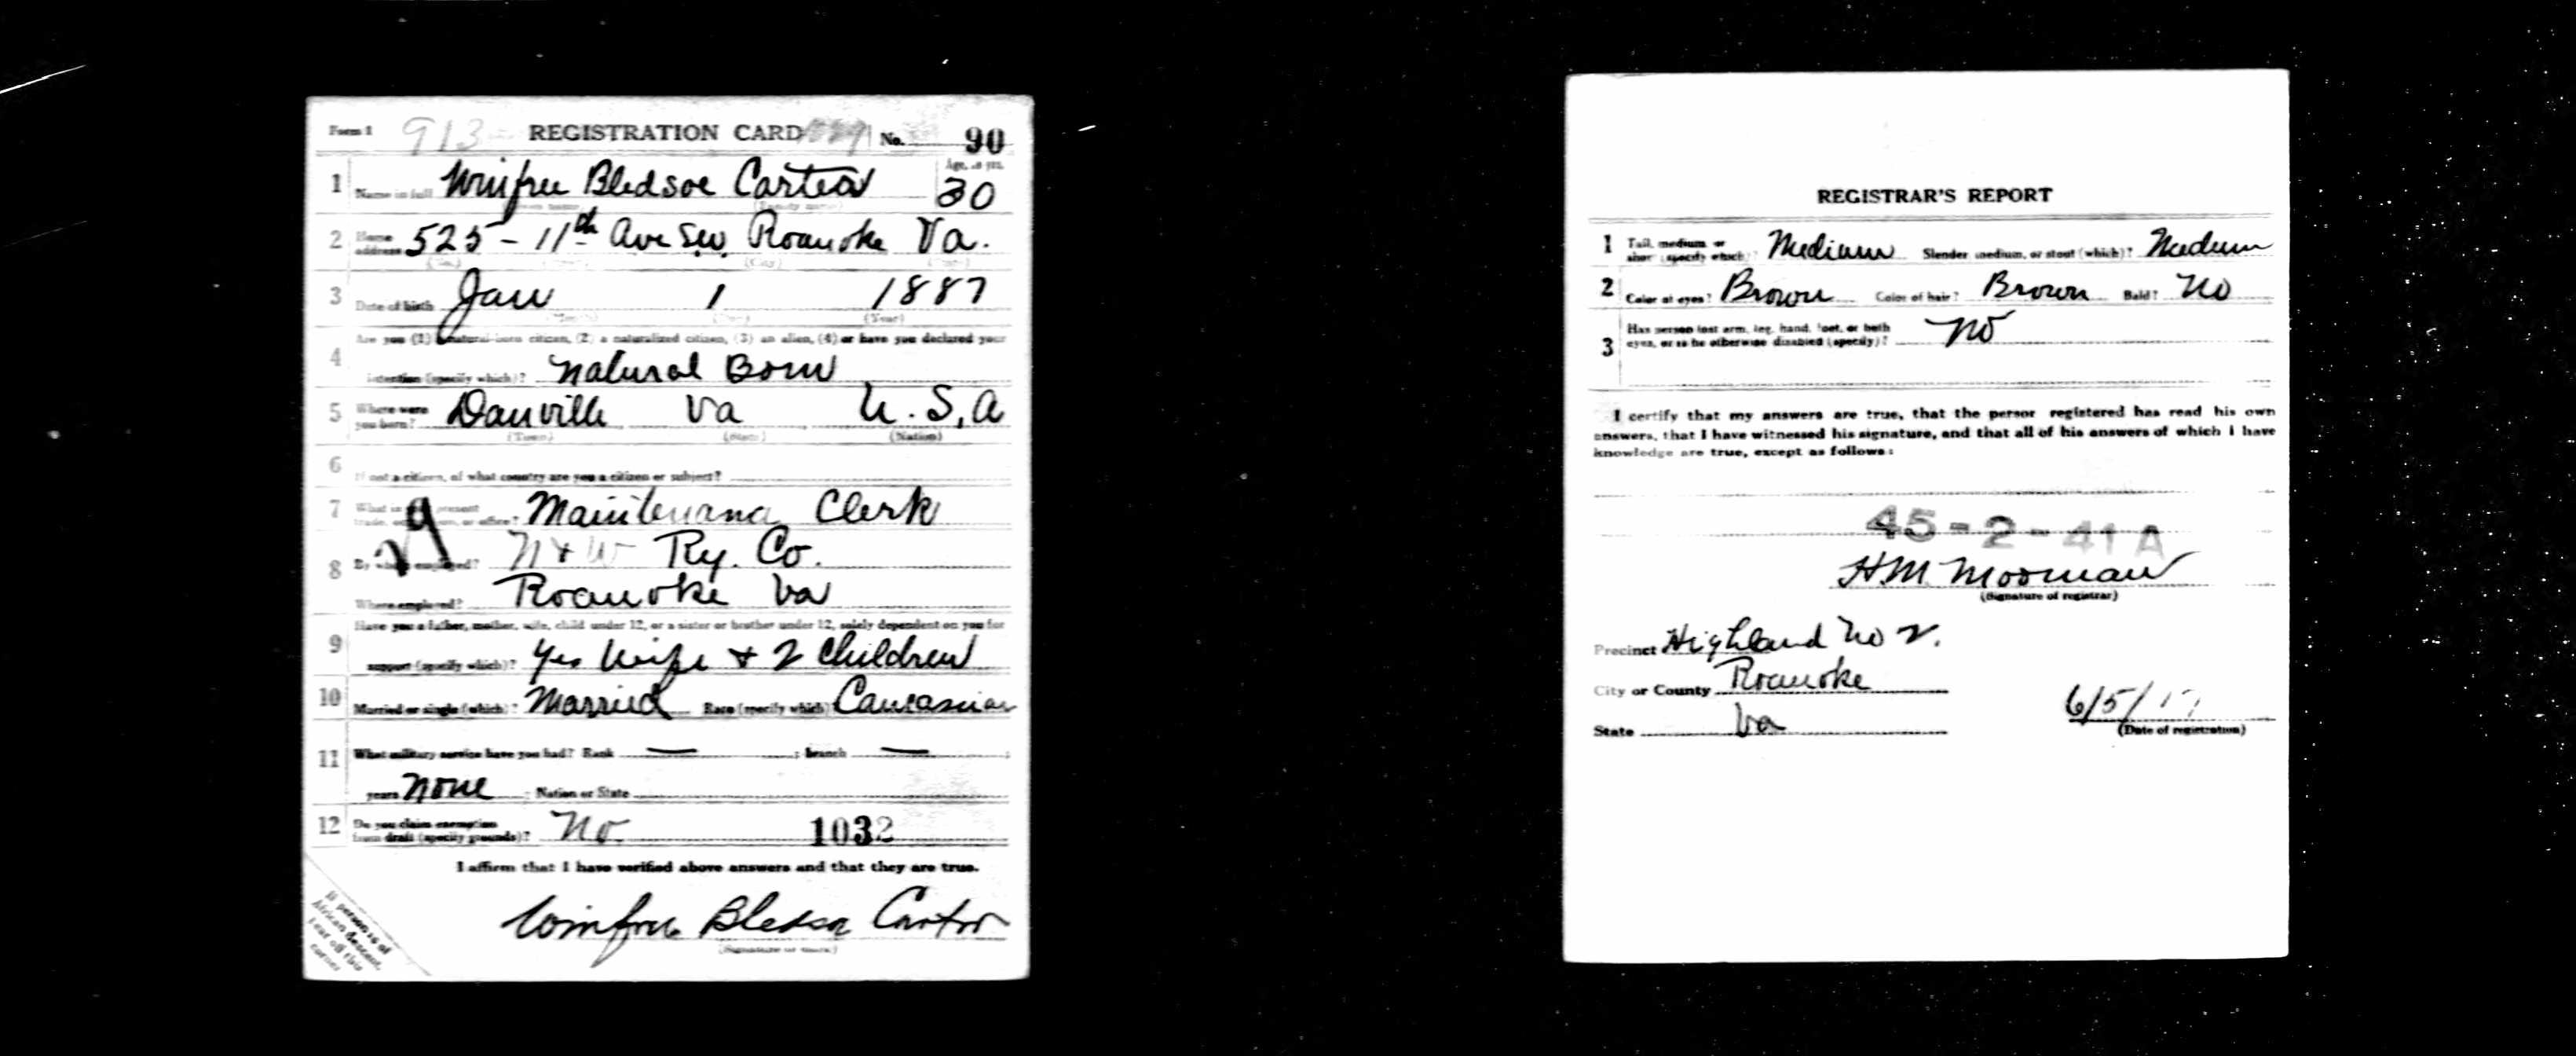 Form 1 913 REGISTRATION CARD No. 90
1 Name in full Winfree Bledsoe Carter Age, in yrs. 30
(Given name) (Family name)
2 Home address 525 - 11th Ave S.W. Roanoke Va.
(No.) (Street) (City) (State)
3 Date of birth Jan 1 1887
(Month) (Day) (Year)
4 Are you (1) a natural-born citizen, (2) a naturalized citizen, (3) an alien, (4) or have you declared your
intention (specify which)? Natural Born
5 Where were you born? Danville Va U.S,A
(Town) (State) (Nation)
6 If not a citizen, of what country are you a citizen or subject?
7 What is your present trade, occupation, or office? Maintenance Clerk
29
8 By whom employed? N & W Ry. Co.
Where employed? Roanoke Va
9 Have you a father, mother, wife, child under 12, or a sister or brother under 12, solely dependent on you for
support (specify which)? Yes Wife + 2 Children
10 Married or single (which)? Married Race (specify which) Caucasian
11 What military service have you had? Rank — ; branch — ;
years None ; Nation or State
12 Do you claim exemption from draft (specify grounds)? No 1032
I affirm that I have verified above answers and that they are true.
Winfree Bledsoe Carter
(Signature or mark)
If person is of
African descent,
tear off this
corner
REGISTRAR'S REPORT
1 Tall, medium, or short (specify which)? Medium Slender, medium, or stout (which)? Medium
2 Color of eyes? Brown Color of hair? Brown Bald? No
3 Has person lost arm, leg, hand, foot, or both
eyes, or is he otherwise disabled (specify)? No
I certify that my answers are true, that the person registered has read his own
answers, that I have witnessed his signature, and that all of his answers of which I have
knowledge are true, except as follows:
45-2-41 A
H.M. Moorman
(Signature of registrar)
Precinct Highland No 2.
City or County Roanoke
State Va 6/5/17
(Date of registration)